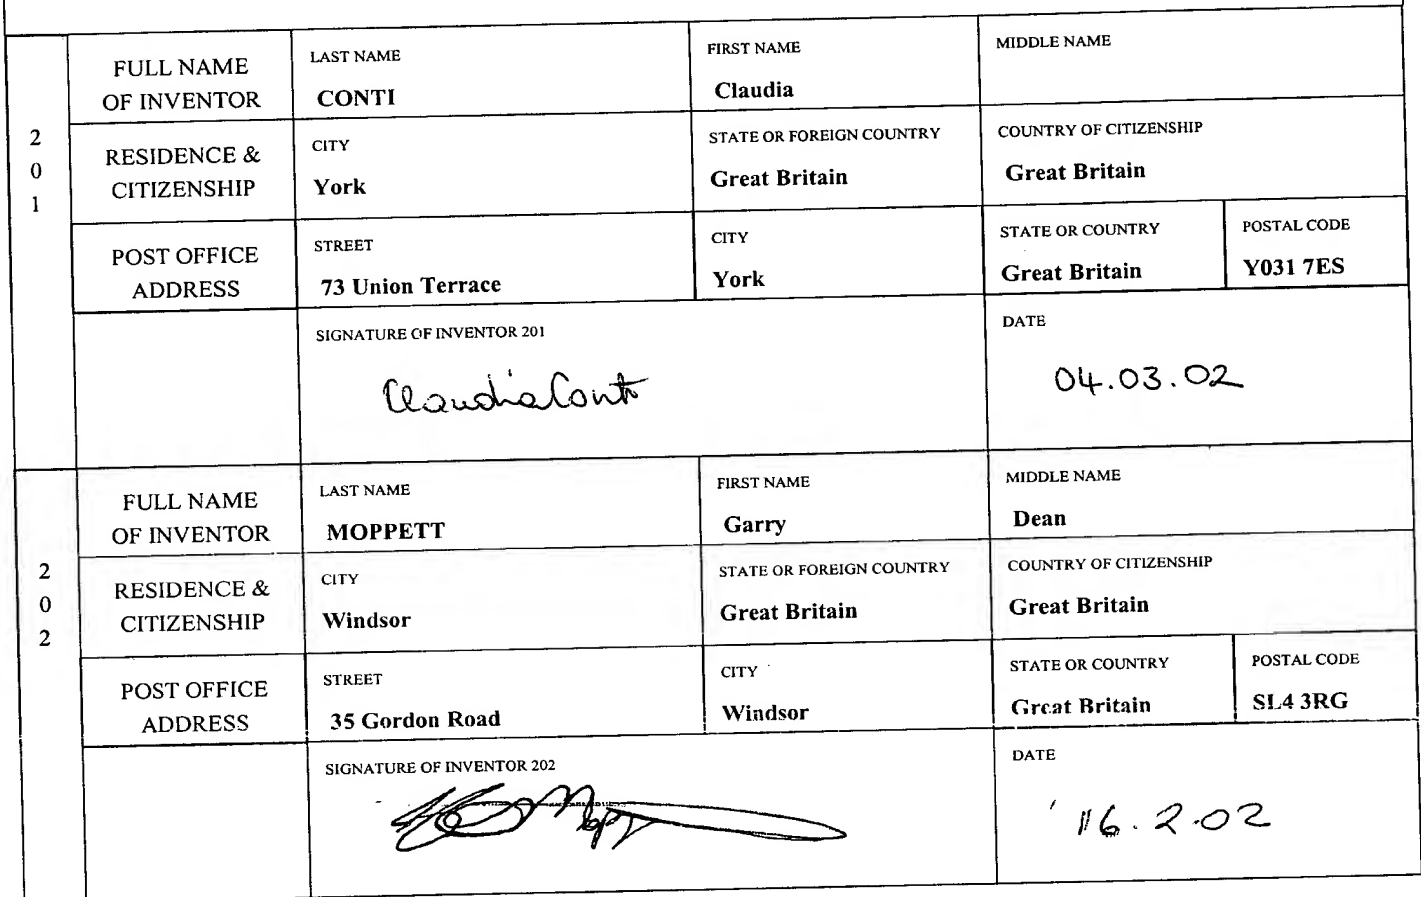 2
0
1
FULL NAME
OF INVENTOR
LAST NAME
CONTI
FIRST NAME
Claudia
MIDDLE NAME
RESIDENCE &
CITIZENSHIP
CITY
York
STATE OR FOREIGN COUNTRY
Great Britain
COUNTRY OF CITIZENSHIP
Great Britain
POST OFFICE
ADDRESS
STREET
73 Union Terrace
CITY
York
STATE OR COUNTRY
Great Britain
POSTAL CODE
Y031 7ES
SIGNATURE OF INVENTOR 201
Claudia Conti
DATE
04.03.02
2
0
2
FULL NAME
OF INVENTOR
LAST NAME
MOPPETT
FIRST NAME
Garry
MIDDLE NAME
Dean
RESIDENCE &
CITIZENSHIP
CITY
Windsor
STATE OR FOREIGN COUNTRY
Great Britain
COUNTRY OF CITIZENSHIP
Great Britain
POST OFFICE
ADDRESS
STREET
35 Gordon Road
CITY
Windsor
STATE OR COUNTRY
Great Britain
POSTAL CODE
SL4 3RG
SIGNATURE OF INVENTOR 202
DATE
16.2.02